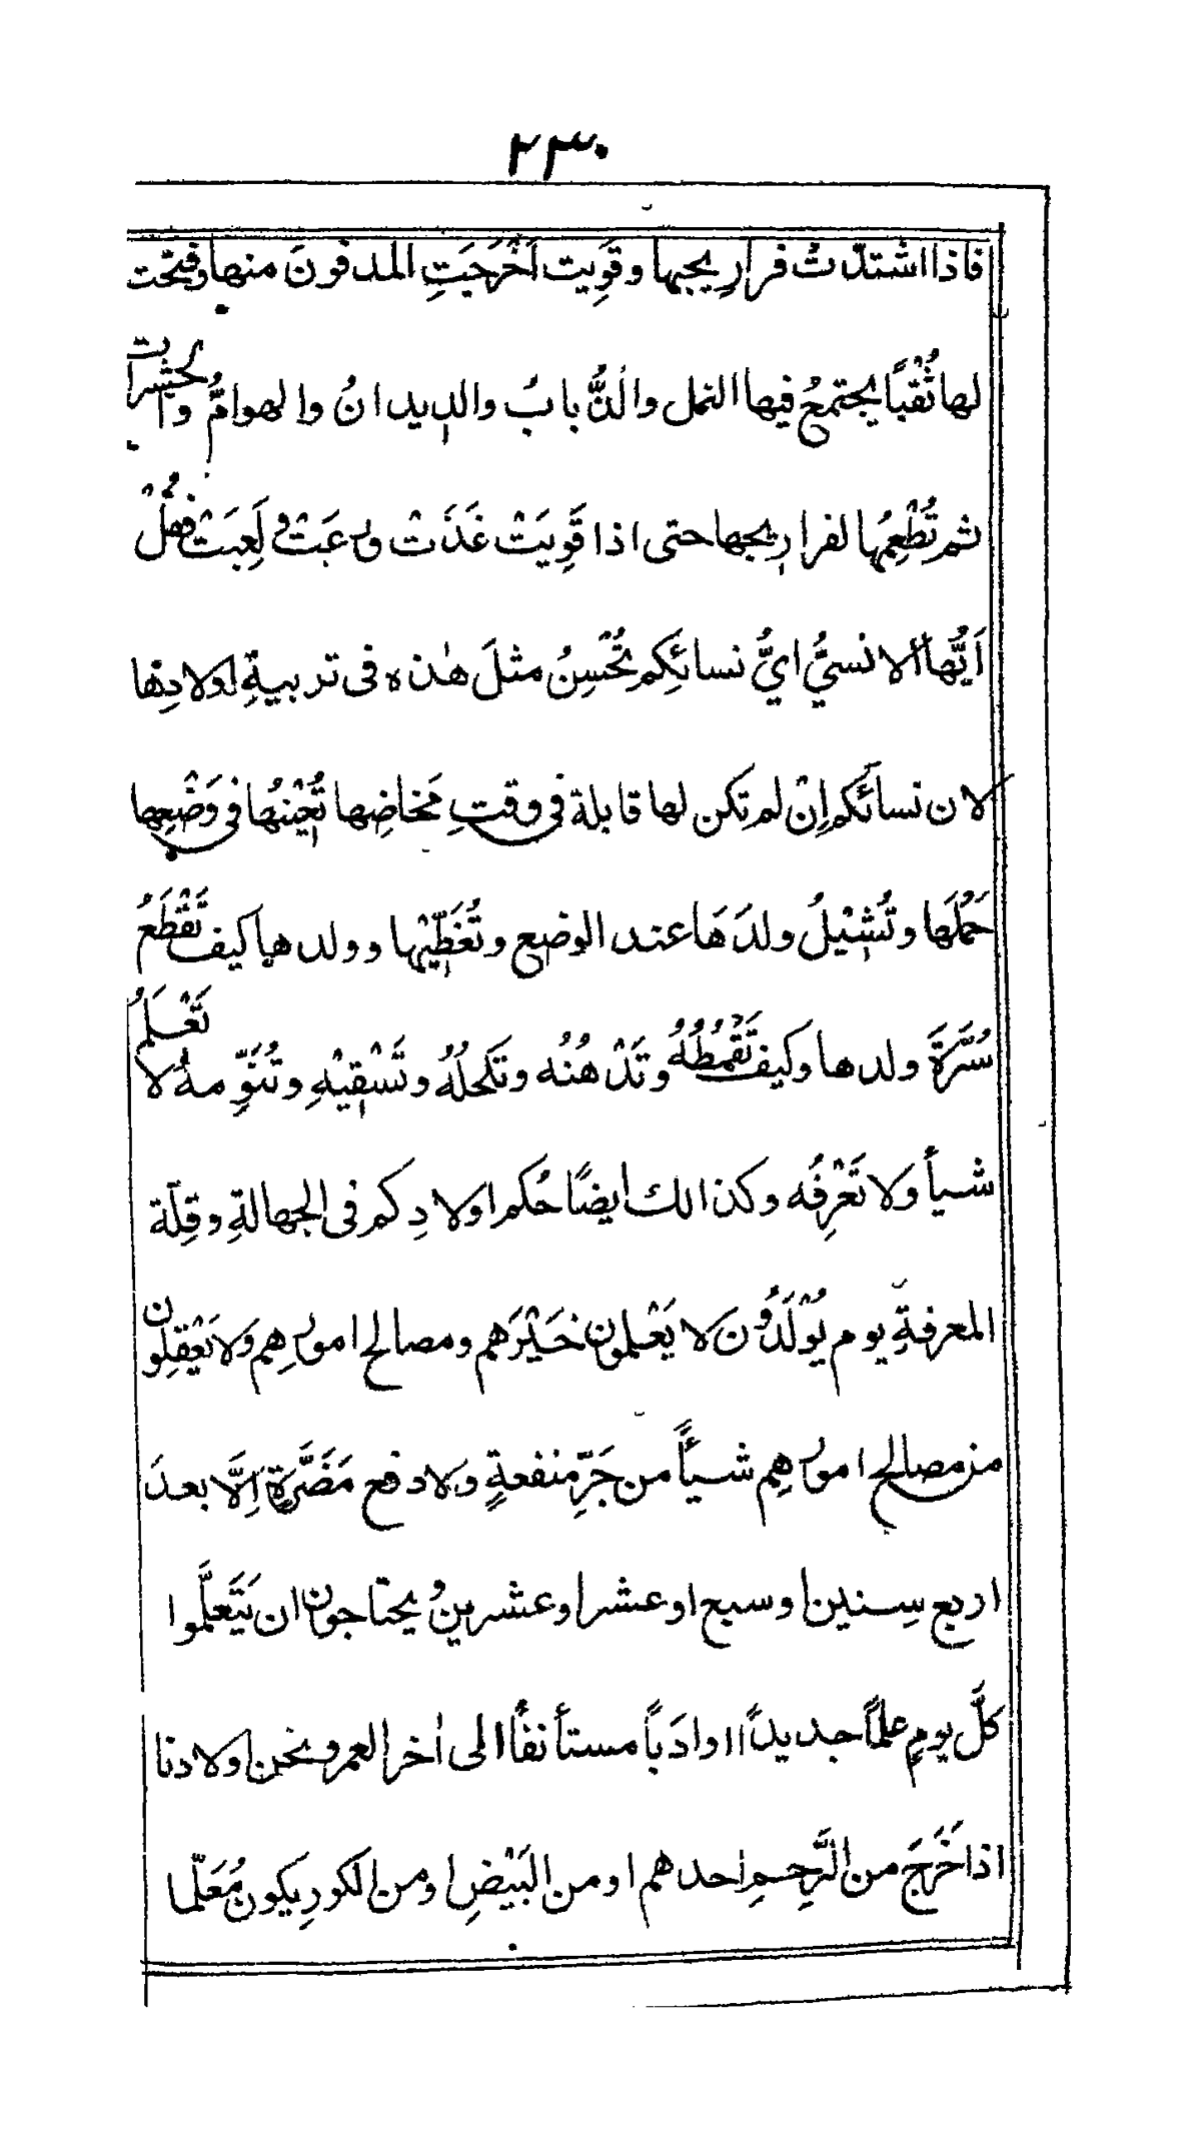 ٢٣٠
فاذا اشتدّتْ فراريجها وقَوِيت اَخْرَجَتِ المدفونَ منها وفتحَت
لها ثُقْبًا يجتمعُ فيها النمل والذُّبابُ والديدانُ والهوامُّ والحشرات
ثم تُطْعِمُها لفراريجها حتى اذا قَوِيَتْ غَذَتْ ورعَتْ ولَعِبَتْ فهَلْ
اَيُّها الانسيُّ ايُّ نسائِكم تُحْسِنُ مثلَ هٰذه فى تربيةِ اولادِها
لان نسائَكم اِنْ لم تكن لها قابلة فى وقتِ مَخاضِها تُعِيْنُها فى وَضْعِها
حَمْلَها وتُشِيْلُ ولدَهَا عند الوضع وتُغَطِّيْها وولدها كيف تَقْطَعُ
سُرَّةَ ولدها وكيف تَقْمُطُهُ وتَدْهُنُه وتَكحلُهُ وتَسْقِيْهِ وتُنَوِّمهُ لا تَعْلَمُ
شيأً ولا تَعْرِفُه وكذالك ايضًا حُكم اولادِكم فى الجهالةِ وقِلّة
المعرفةِ يوم يُوْلَدُوْنَ لا يَعْلمون خَيْرَهم ومصالح امورِهم وَلا يَعْقِلون
من مصالح امورِهِم شيأً من جَرِّ منفعةٍ ولا دفع مَضَرَّةٍ اِلَّا بعدَ
اربع سِنين اوسبع اوعشر اوعشرين وُيحتاجون ان يَتَعلَّموا
كلَّ يومٍ علمًا جديدًا اوادَبًا مستأنفًا الى اٰخر العمر ونحن اولادنا
اذا خَرَجَ من الرَّحِمِ احدهم اومن البَيْضِ اومن الكورِ يكون مُعَلّما